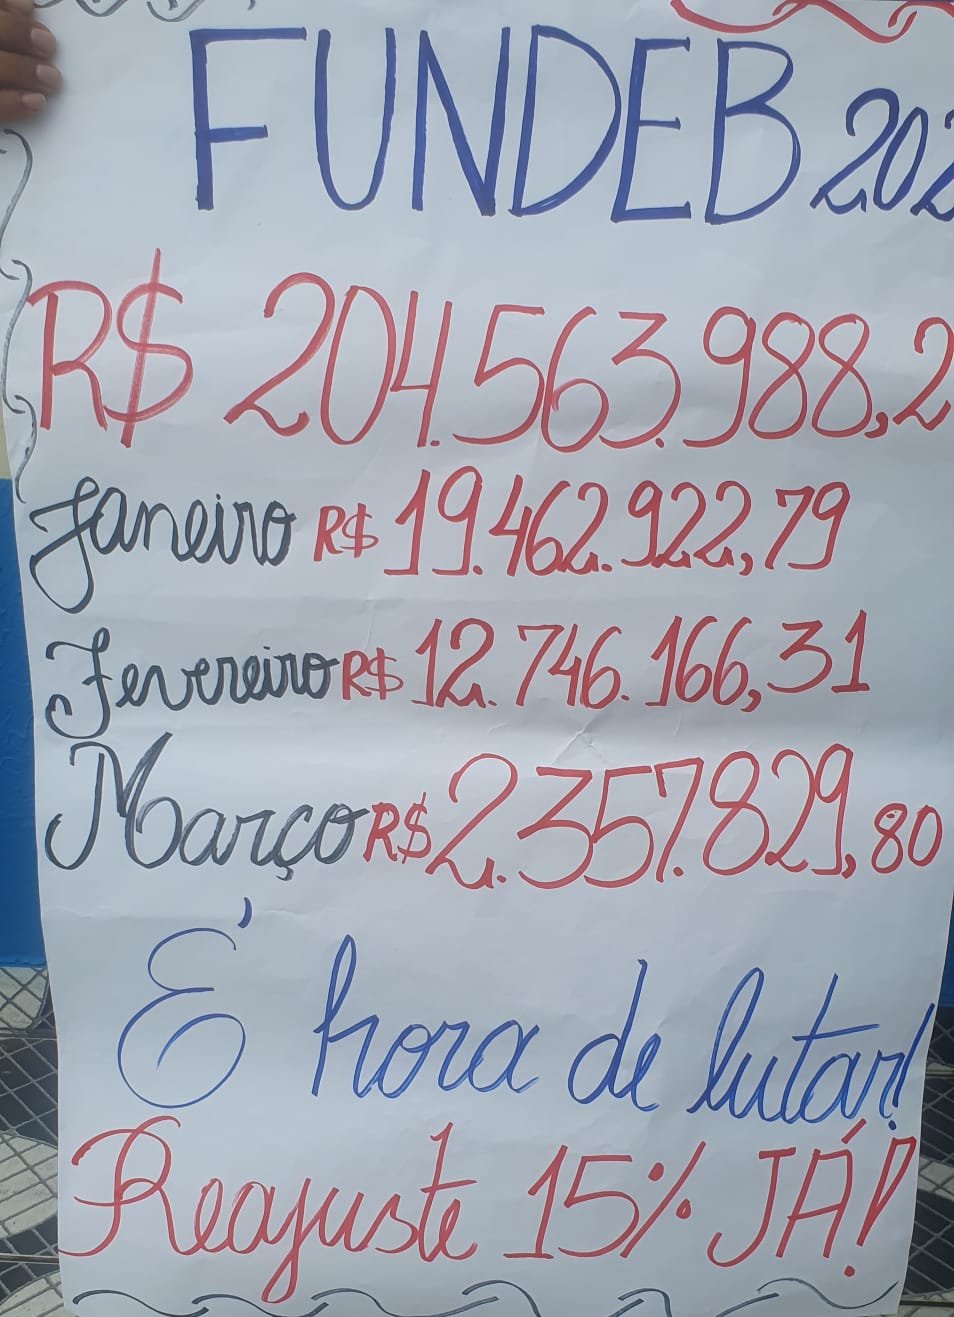 FUNDEB 202
R$ 204.563.988,2
Janeiro R$ 19.462.922,79
Fevereiro R$ 12.746.166,31
Março R$ 2.357.829,80
É hora de lutar!
Reajuste 15% JÁ!